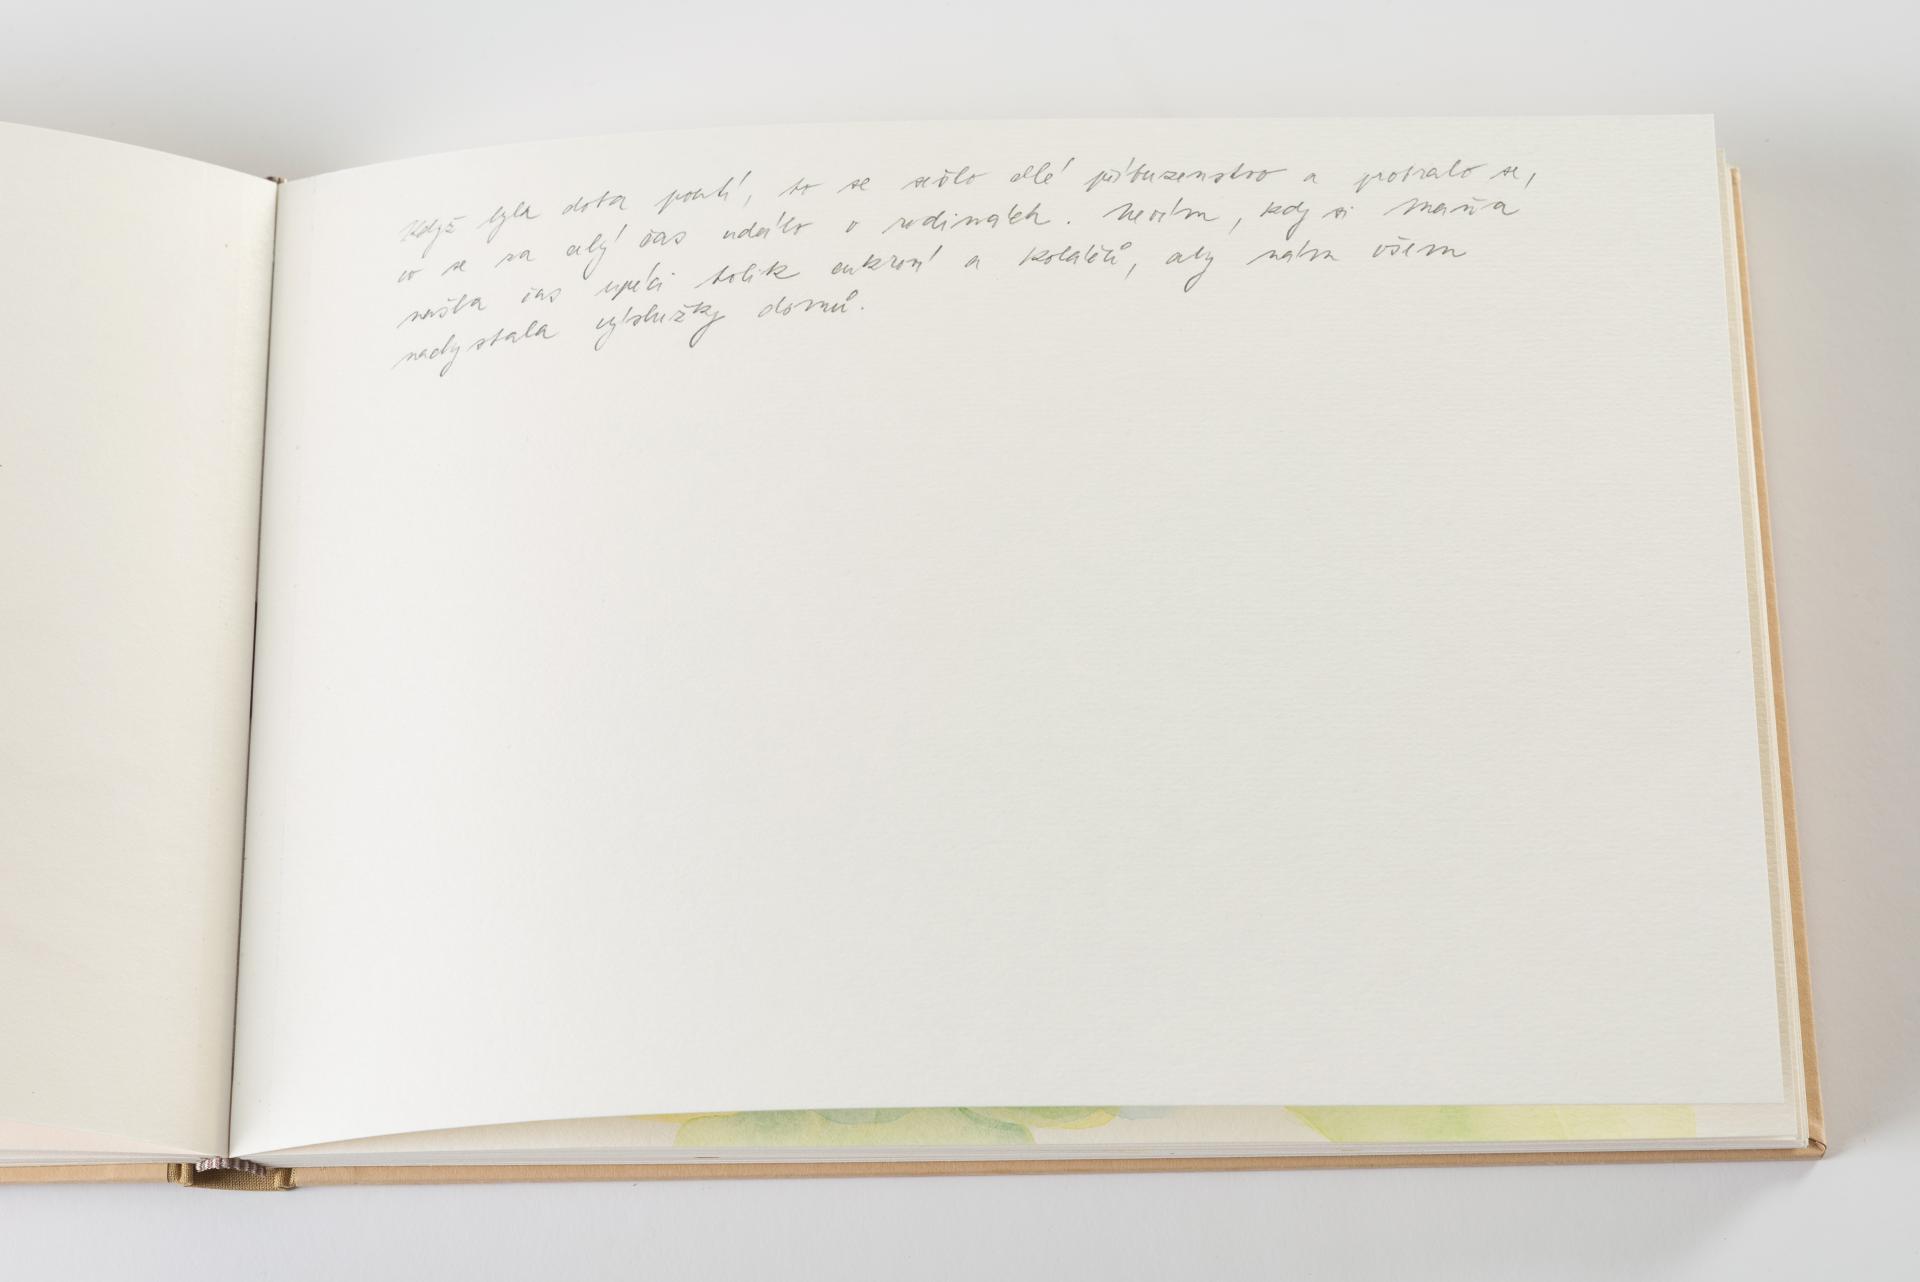 Když byla doba poutí, to se sešlo celé příbuzenstvo a probralo se,
co se za celý čas událo v rodinách. Nevím, kdy si Mařa
našla čas upéci tolik cukroví a koláčů, aby nám všem
nachystala výslužky domů.